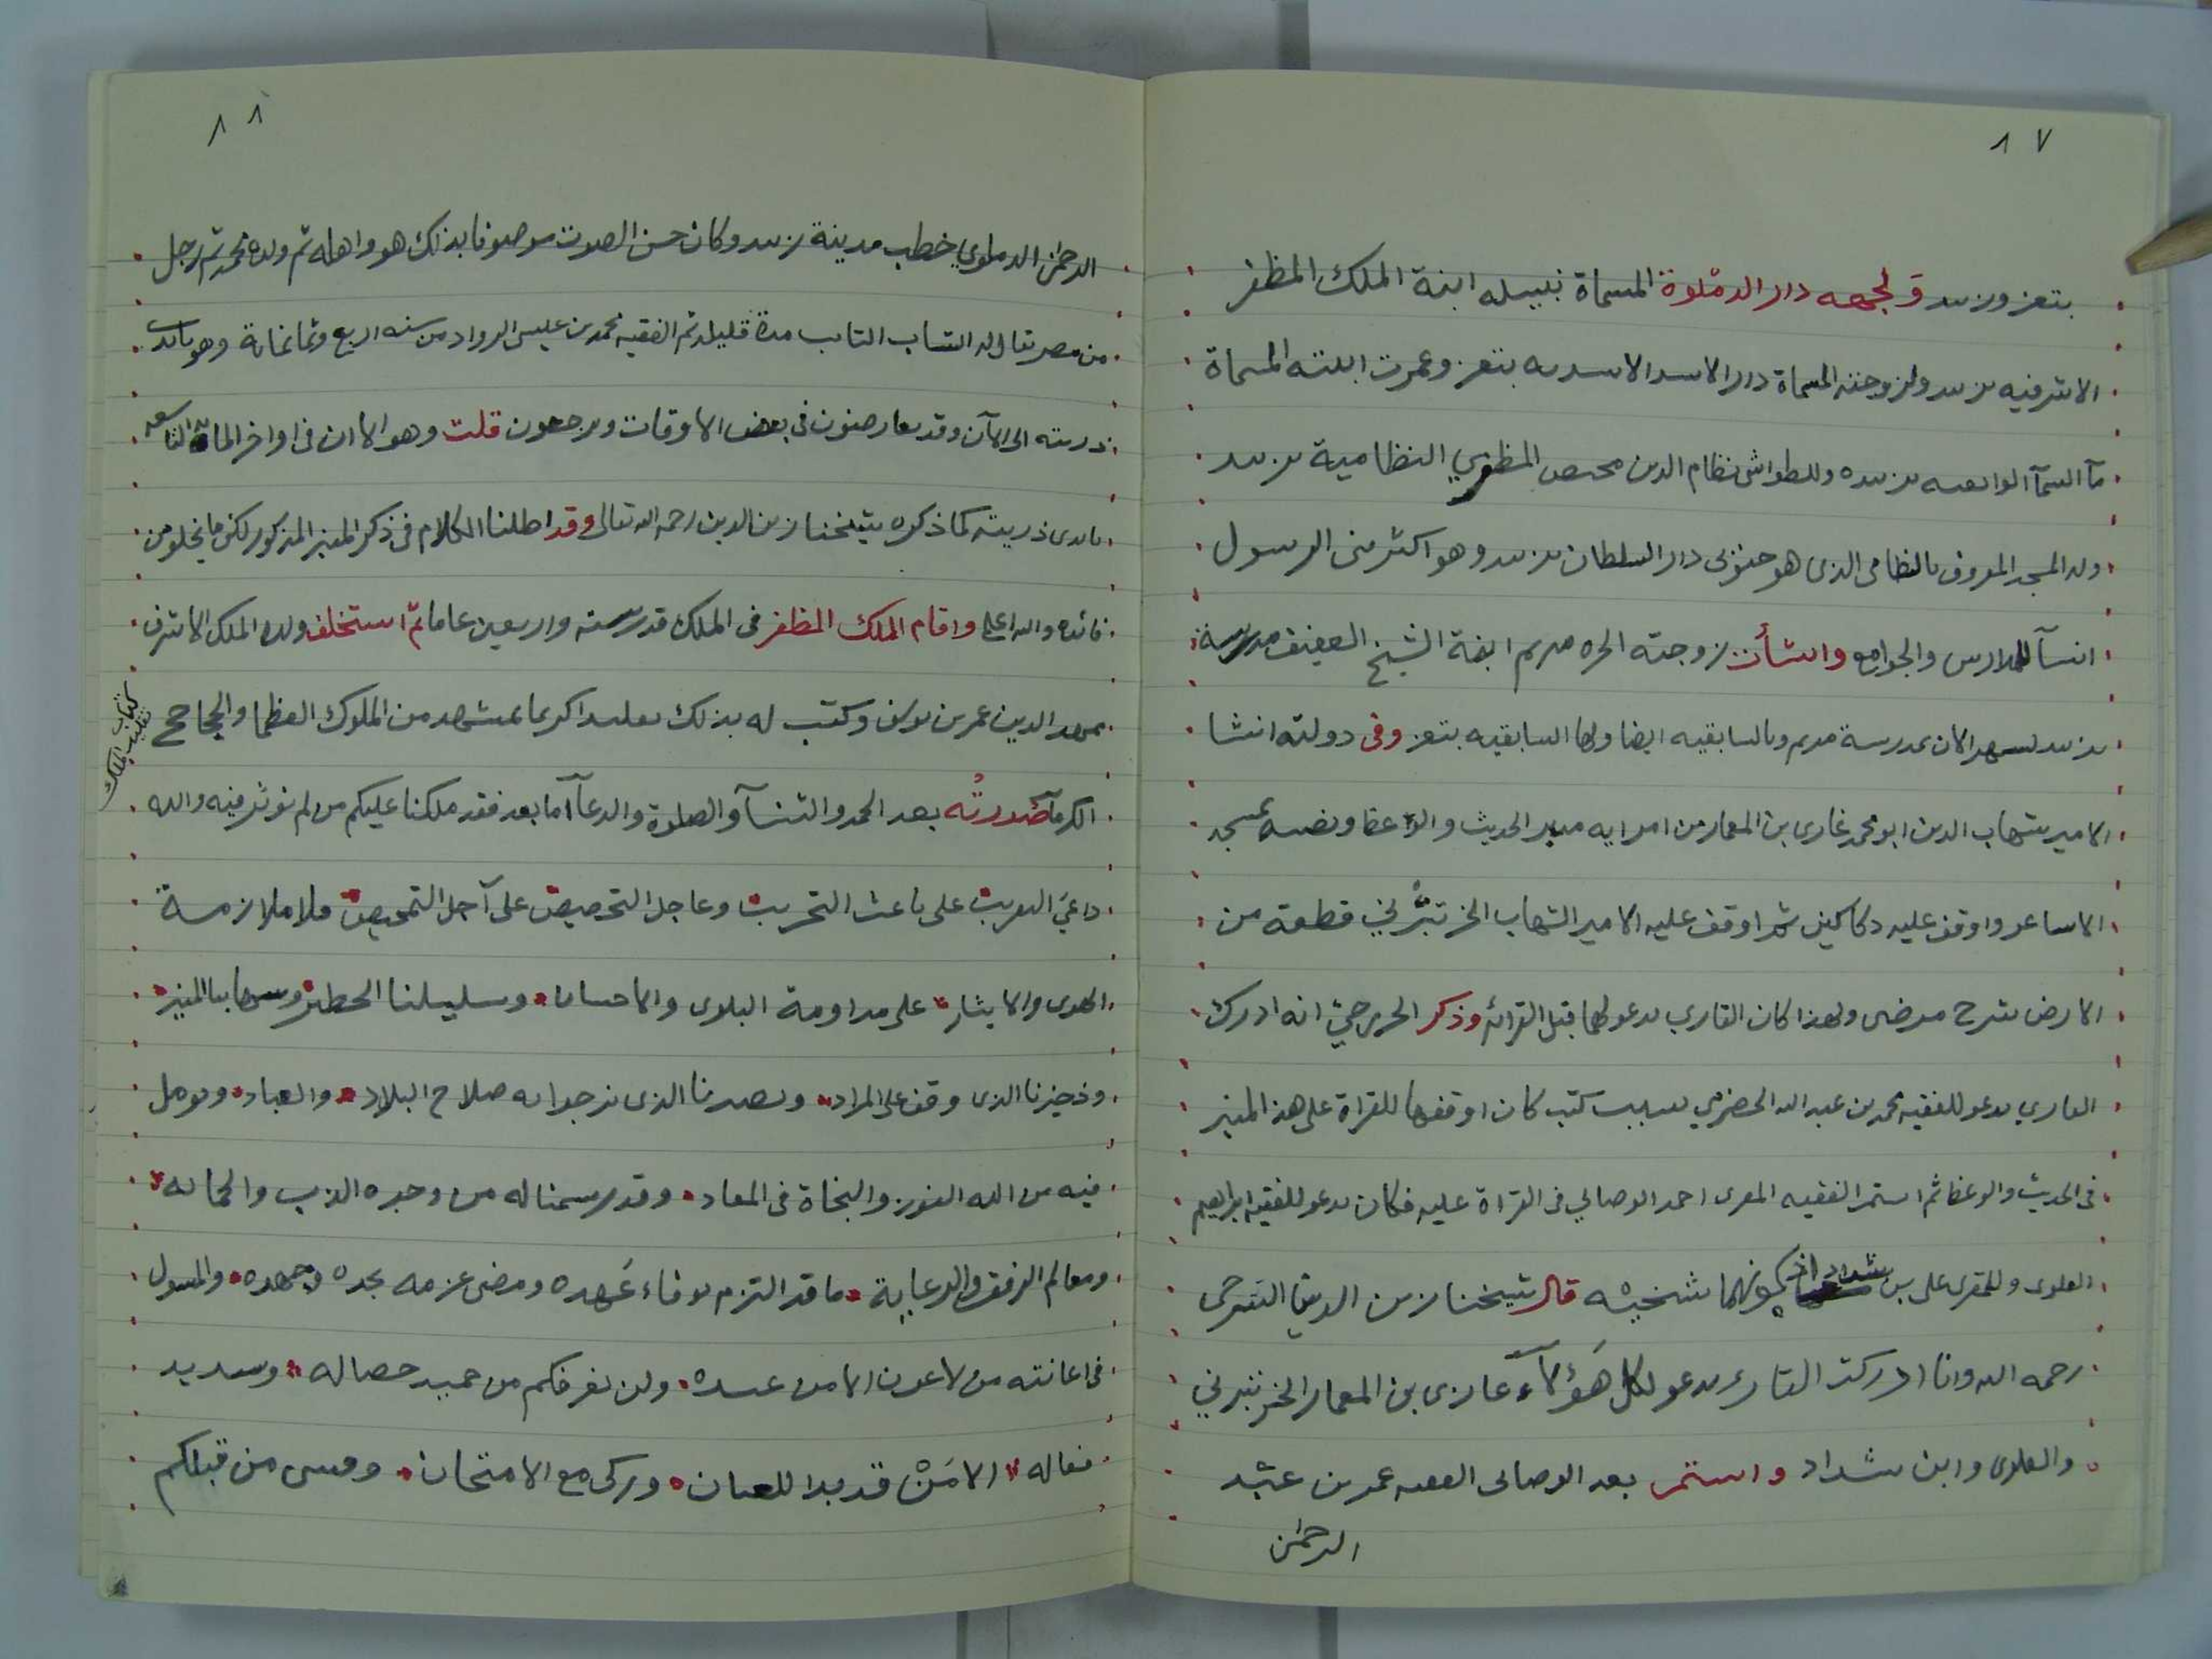 ٨٧
بتعز وزبيد ولجهه دار الدملوة المسماة نبيله ابنة الملك المظفر
الاشرفيه بزبيد ولزوجته المسماة دار الاسد الاسديه بتعز وعمرت ابنته المسماة
مآ السمآ الواثقيه بزبيده وللطواشي نظام الدين مختص المظفري النظامية بزبيد
وله المسجد المعروف بالنظامي الذي هو جنوبي دار السلطان بزبيد وهو اكثر بني الرسول
انسآ للمدارس والجوامع وانشأت زوجته الحره مريم ابنة الشيخ العفيف مدرسة
بزبيد تسمى الان بمدرسة مريم وبالسابقيه ايضا ولها السابقيه بتعز وفي دولته انشا
الامير شهاب الدين ابو محمد غازي بن المعمار من امرايه منبر الحديث والوعظ ونصبه بمسجد
الاشاعر واوقف عليه دكاكين ثم اوقف عليه الامير الشهاب الخرتبرتي قطعة من
الارض بشرح مرضى ولهذا كان القاري يدعو لهما قبل القرائة وذكر الخزرجي انه ادرك
القاري يدعو للفقيه محمد بن عبد الله الحضرمي بسبب كتب كان اوقفها للقراة على هذا المنبر
في الحديث والوعظ ثم استمر الفقيه المقري احمد الوصابي في القراة عليه فكان يدعو للفقيه ابراهيم
العلوى وللمقرى على بن شداد لكونهما شيخيه قال شيخنا زين الدين الشرجي
رحمه الله وانا ادركت القاري يدعو لكل هؤلآء غازى بن المعمار الخرتبرتي
والعلوى وابن شداد واستمر بعد الوصابى الفقيه عمر بن عبد
الرحمن
٨٨
الرحمن الدملوي خطيب مدينة زبيد وكان حسن الصوت موصوفا بذلك هو واهله ثم ولده محمد ثم رجل
من مصر يقال له الشاب التايب مدة قليله ثم الفقيه محمد بن عيسى الرواد من سنه اربع وثمانماية وهو بايدي
ذريته الى الآن وقد يعارضون في بعض الاوقات ويرجعون قلت وهو الاان في اواخر المايه التاسعه
بايدى ذريته كما ذكره شيخنا زين الدين رحمه الله تعالى وقد اطلنا الكلام في ذكر المنبر المذكور لكن ما يخلو من
فائده والله اعلم واقام الملك المظفر في الملك قدر سته واربعين عاما ثم استخلف ولده الملك الاشرف
ممهد الدين عمر بن يوسف وكتب له بذلك تقليدا كريما بمشهد من الملوك العظما والجحاجح
كتاب تقليد الملك
الكرمآ صورته بعد الحمد والثنآ والصلوة والدعآ اما بعد فقد ملكنا عليكم من لم نوثر فيه والله
داعي التقريب على باعث التجريب وعاجل التخصيص على آجل التمحيص ملا ملازمة
الهوى والايثار على مداومة البلوى والاحسان وسليلنا الخطير وشهابنا المنير
وذخيرنا الذى وقف على المراد ونصيرنا الذى نرجوا به صلاح البلاد والعباد ونومل
فيه من الله الفوز والنجاة في المعاد وقد رسمنا له من وجوه الذب والحمايه
ومعالم الرفق والرعاية ما قد التزم بوفاء عهده ومضى عزمه بجده وجهده والمسول
في اعانته من لا عون الا من عنده ولن نعرفكم من حميد خصاله وسديد
فعاله الا من قد بدا للعيان وزكى مع الامتحان وفشى من قبلكم